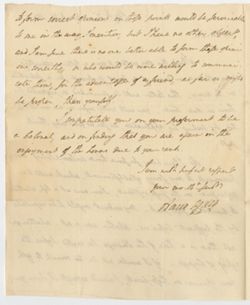 to form correct opinions on those points would be serviceable
to me in the way I mention, but I have no other object,
and I am sure there is no one better able to form those opin-
ions correctly, or who would be more willing to communi-
cate them, for the advantage of a friend as far as might
be proper than yourself.
I congratulate you on your preferment to be
a Colonel, and on finding that you are again in the
enjoyment of the honor due to your rank
I am with perfect respect
your mo ob Servt